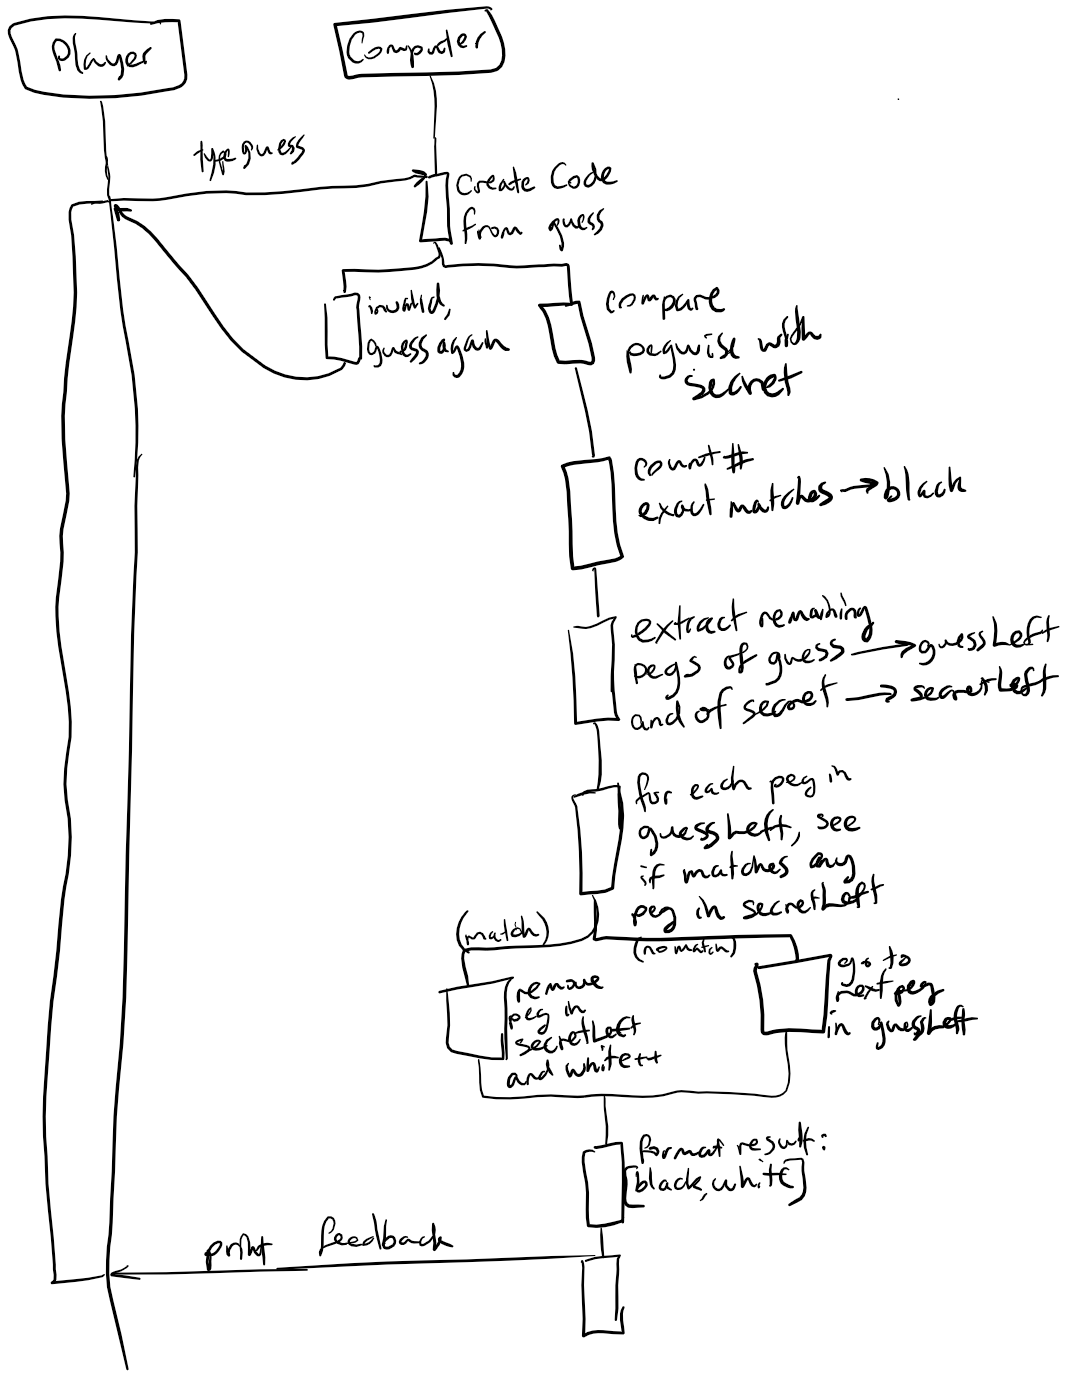 Player
Computer
type guess
Create Code
from guess
invalid,
guess again
compare
pegwise with
secret
count #
exact matches → black
extract remaining
pegs of guess → guessLeft
and of secret → secretLeft
for each peg in
guessLeft, see
if matches any
peg in secretLeft
(match)
(no match)
remove
peg in
secretLeft
and white++
go to
next peg
in guessLeft
format result:
[black, white]
print feedback